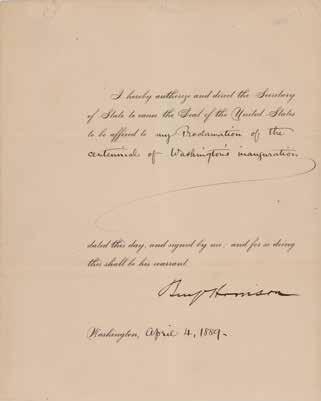 I hereby authorize and direct the Secretary
of State to cause the Seal of the United States
to be affixed to my Proclamation of the
centennial of Washington's inauguration
dated this day, and signed by me; and for so doing
this shall be his warrant.
Benj Harrison
Washington, April 4, 1889.